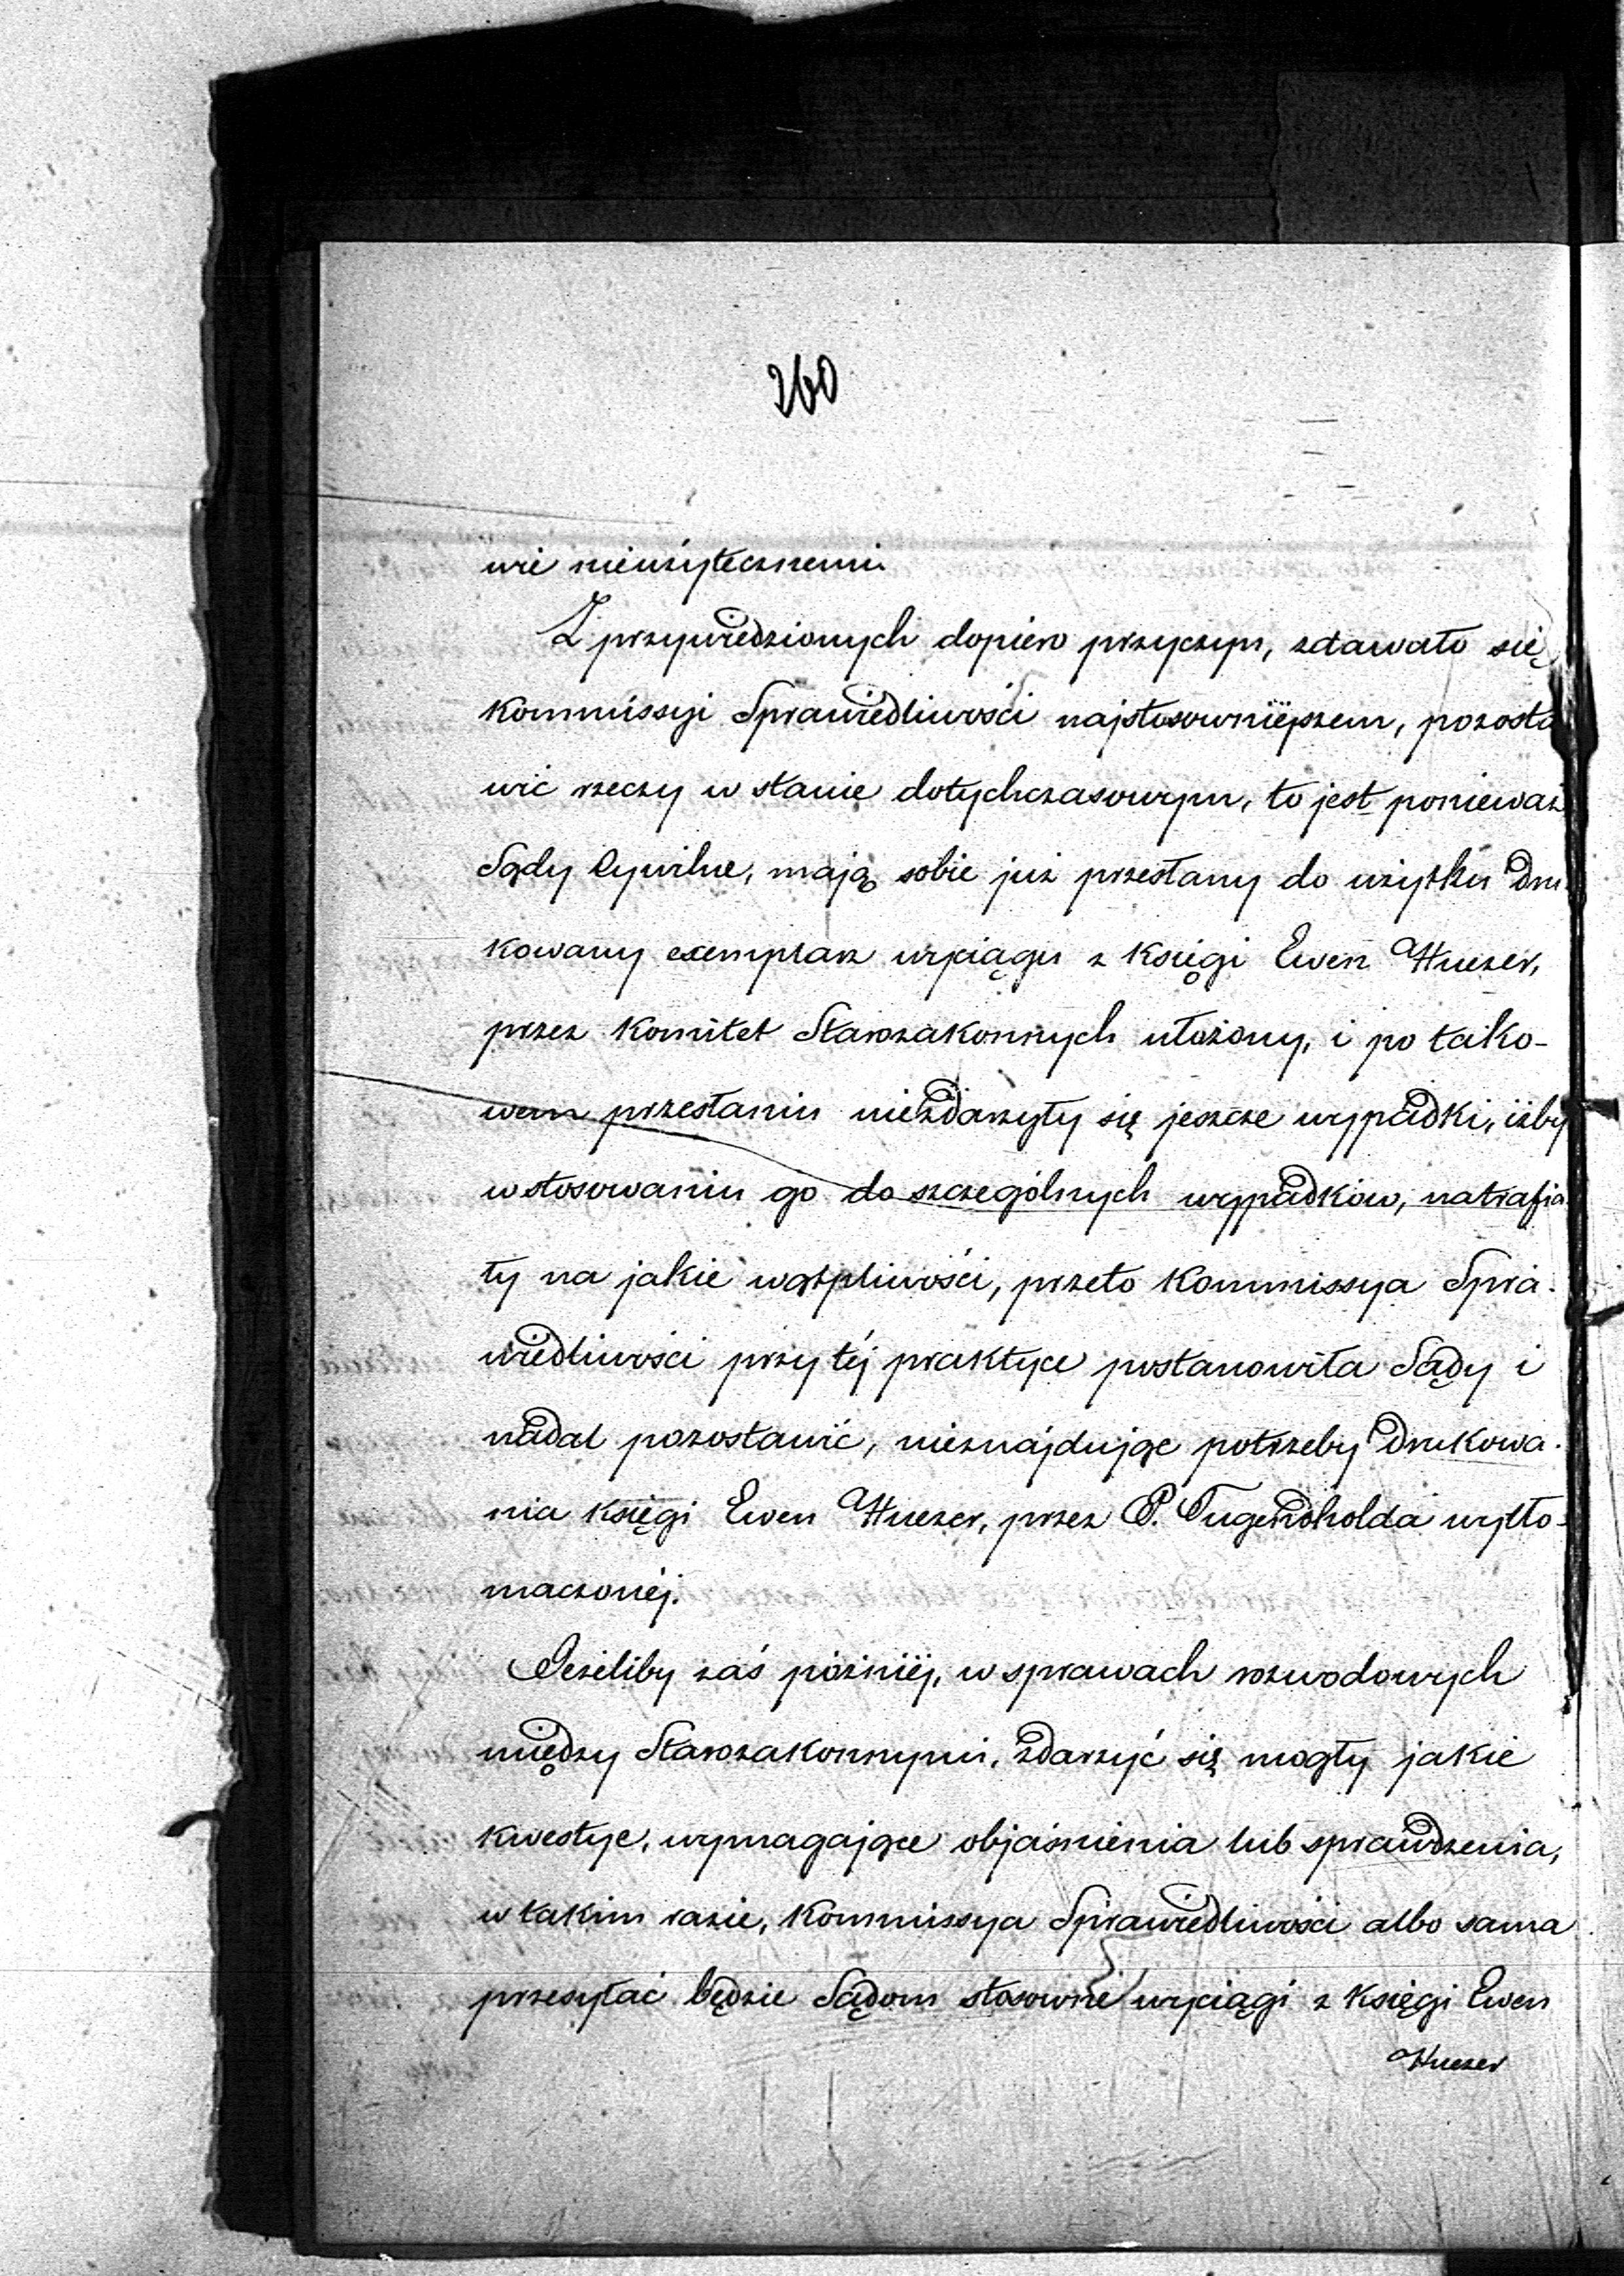 260
wie nieużytecznemi.
Z przywiedzionych dopiero przyczyn, zdawało się
Kommissyi Sprawiedliwości najstosowniéjszem, pozosta
wić rzeczy w stanie dotychczasowym, to jest ponieważ
Sądy Cywilne, mają sobie już przesłany do użytku dru-
kowany exemplarz wyciągu z Księgi Ewen Huezer,
przez Komitet Starozakonnych ułożony, i po tako-
wem przesłaniu niezdarzyły się jeszcze wypadki, iżby
w stosowaniu go do szczególnych wypadków, natrafia
ły na jakie wątpliwości, przeto Kommissya Spra-
wiedliwości przy téj praktyce postanowiła Sądy i
nadal pozostawić, nieznajdując potrzeby drukowa-
nia księgi Ewen Huezer, przez P. Tugendholda wytło-
maczonéj.
Jeżeliby zaś późniéj, w sprawach rozwodowych
między Starozakonnymi, zdarzyć się mogły jakie
kwestye, wymagające objaśnienia lub sprawdzenia,
w takim razie, Kommissya Sprawiedliwości albo sama
przesyłać będzie Sądom stosowne wyciągi z Księgi Ewen
Huezer